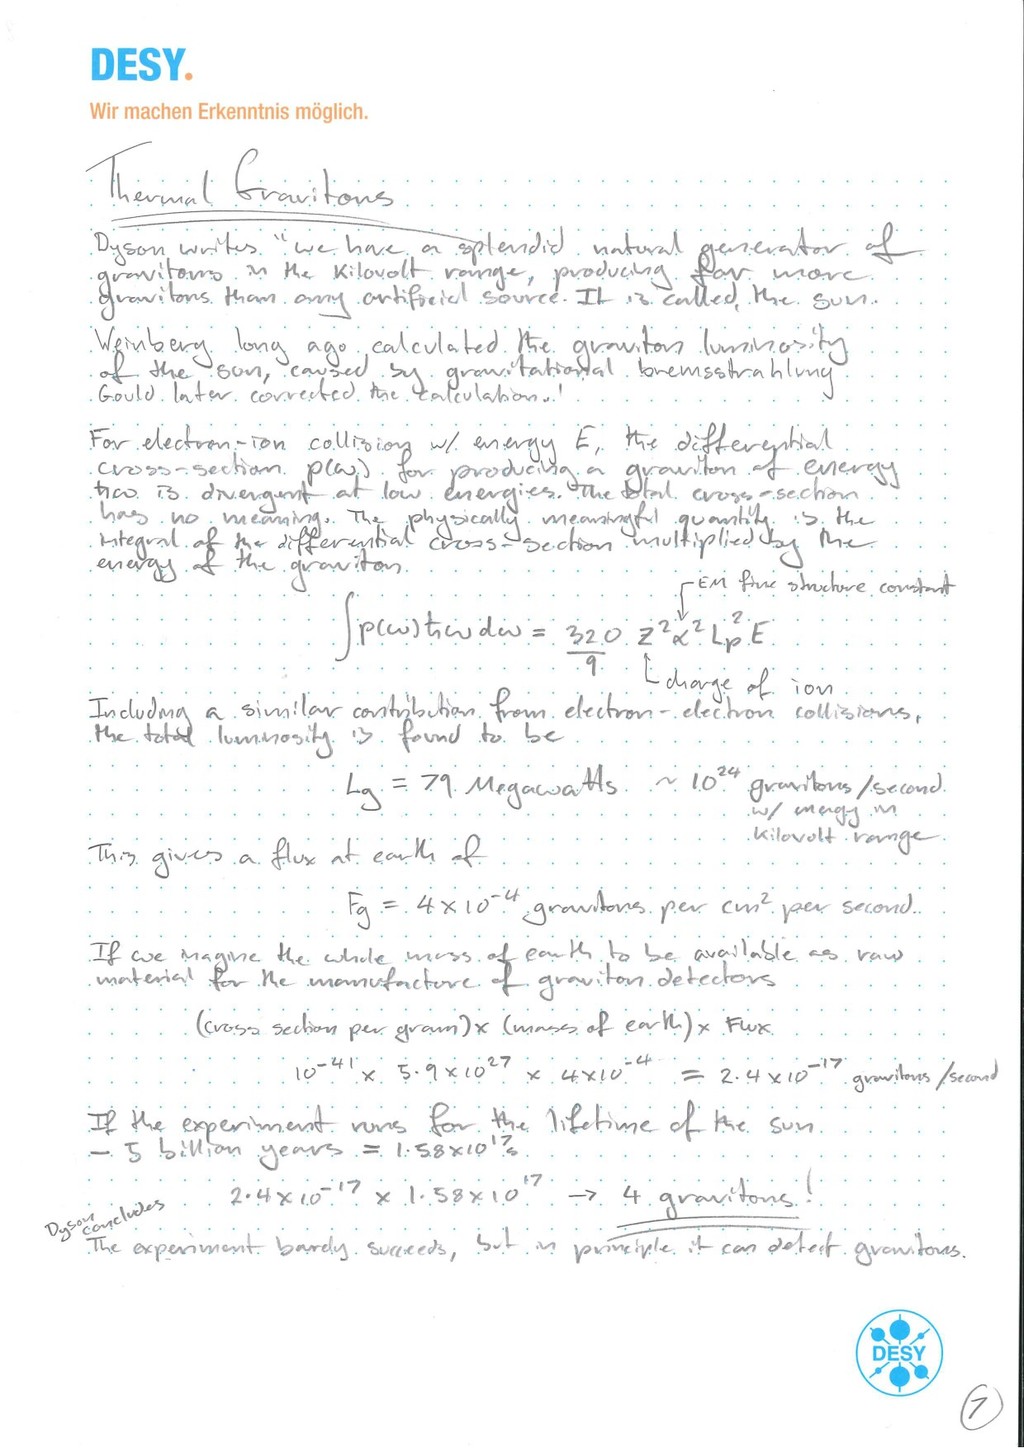 DESY.
Wir machen Erkenntnis möglich.
Thermal Gravitons
Dyson writes "we have a splendid natural generator of
gravitons in the kilovolt range, producing far more
gravitons than any artificial source. It is called, the sun.
Weinberg long ago calculated the graviton luminosity
of the sun, caused by gravitational bremsstrahlung
Gould later corrected the calculation.."
For electron-ion collision w/ energy E, the differential
cross-section p(ω) for producing a graviton of energy
ħω is divergent at low energies. The total cross-section
has no meaning. The physically meaningful quantity is the
integral of the differential cross-section multiplied by the
energy of the graviton.
EM fine structure constant
∫p(ω)ħωdω = 320/9 Z²α²Lp²E
charge of ion
Including a similar contribution from electron-electron collisions,
the total luminosity is found to be
Lg = 79 Megawatts ~ 10²⁴ gravitons/second
w/ energy in
kilovolt range
This gives a flux at earth of
Fg = 4×10⁻⁴ gravitons per cm² per second.
If we imagine the whole mass of earth to be available as raw
material for the manufacture of graviton detectors
(cross section per gram)× (mass of earth)× Flux
10⁻⁴¹ × 5.9×10²⁷ × 4×10⁻⁴ = 2.4×10⁻¹⁷ gravitons/second
If the experiment runs for the lifetime of the sun
– 5 billion years = 1.58×10¹⁷s
2.4×10⁻¹⁷ × 1.58×10¹⁷ → 4 gravitons!
Dyson concludes
The experiment barely succeeds, but in principle it can detect gravitons.
DESY
7